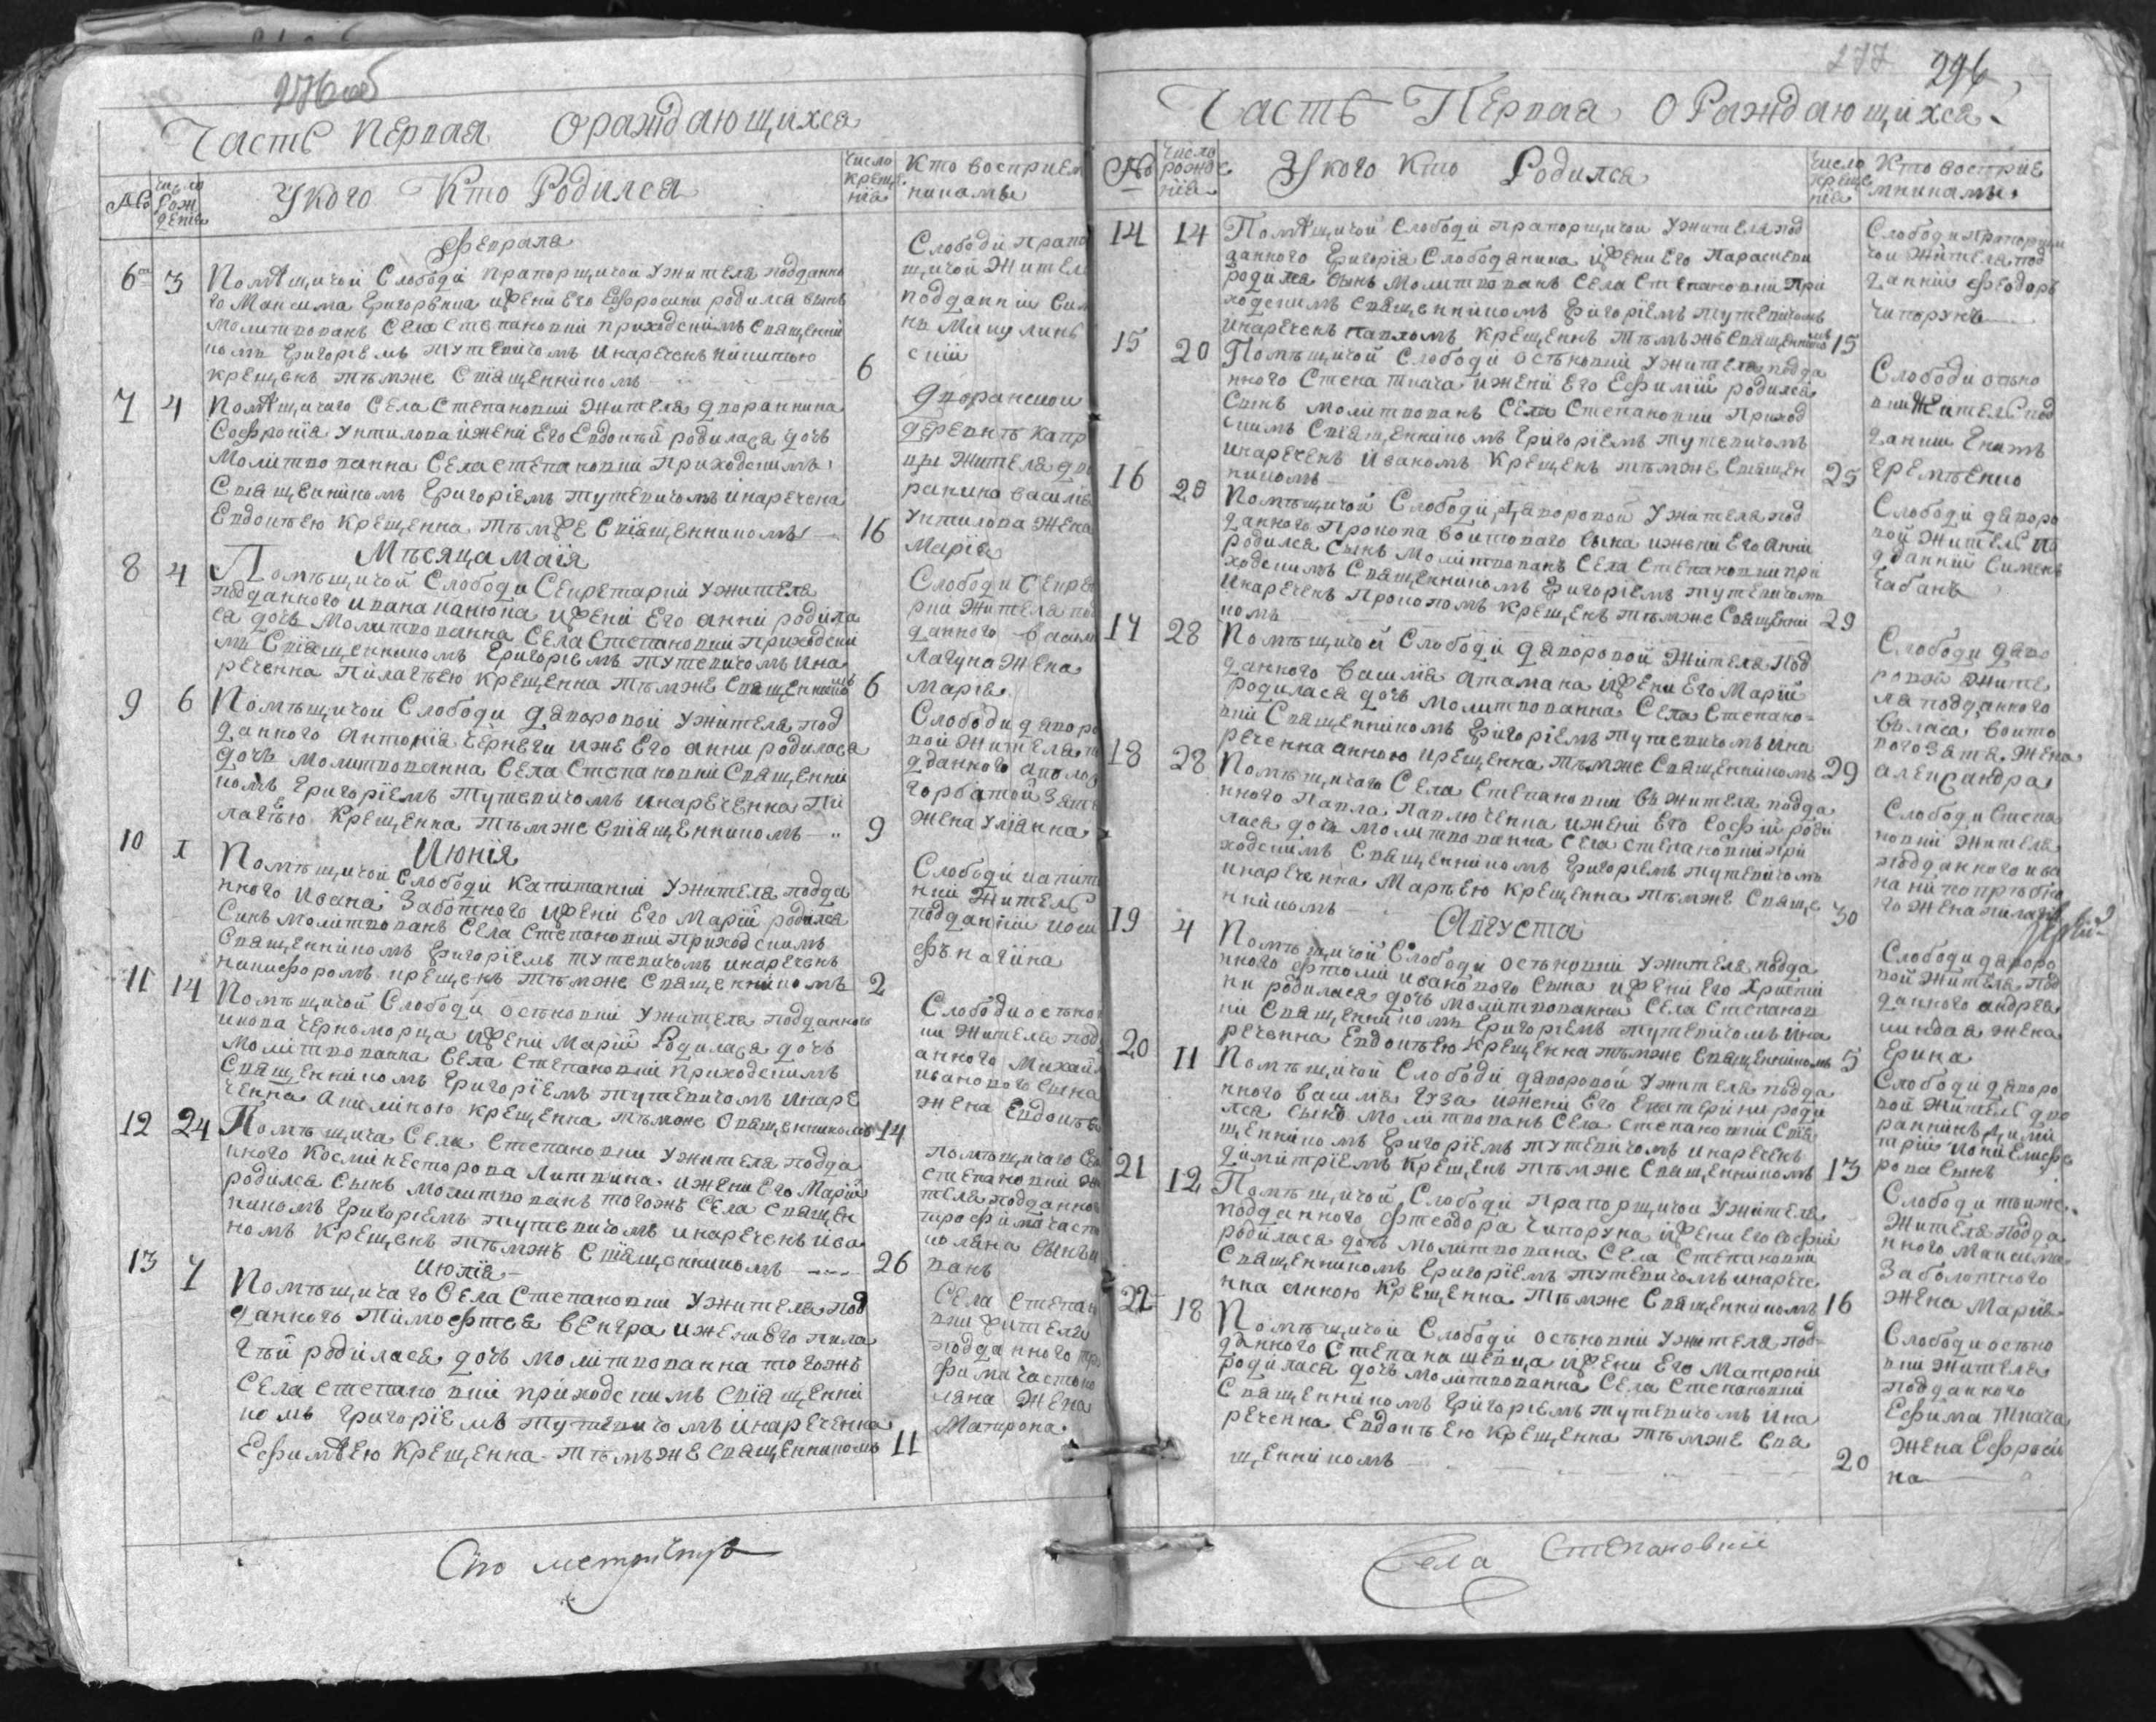 276 об
Часть первая о раждающихся
№
число рож дения
У кого Кто Родился
число креще нія
Кто восприем никамы
Февраля
6 3 Помѣщичой Слободи прапорщичои Ужителя подданно
го Максима Григоренка и жени Его Ефросини родился сынъ
молитвованъ Села Степановки приходскимъ Священни
комъ Григоріемъ Тутевичомъ и нареченъ Никитою
крещенъ тѣмже Священникомъ 6
Слободи прапо
щичой Жител
подданній
Микулинъ
7 4 Помѣщичаго Села Степановки Жителя дворанина
Софронія Уктилова и жени Его Евдокіи родилася дочь
Молитвованна Села Степановки Приходскимъ
Священникомъ Григоріемъ Тутевичомъ и наречена
Евдокѣею Крещенна тѣмже Священникомъ 16
дворанскои
деревнѣ капр
Жителя дво
ранина василія
Уктилова Жена
Марія
Мѣсяца маія
8 4 Помѣщичой Слободи Секретарки Ужителя
подданного Ивана панюка и жени Его анни родила
ся дочь Молитвованна Села Степановки Приходски
мъ Священникомъ Григоріемъ Тутевичомъ и на
реченна Пилагѣею крещенна тѣмже Священникомъ 6
Слободи Секре
рки Жителя по
данного Васил
Лагуна Жена
Марія
9 6 Помѣщичои Слободи дяворовой Ужителя под
данного Антонія Чернеги и же Его анни родилася
дочь молитвованна Села Степановки Священни
комъ Григоріемъ Тутевичомъ и нареченна Пи
лагѣею Крещенна тѣмже священникомъ 9
Слободи дяворо
вой Жителя п
дданного
горбатой Зять
Жена Уліанна
Июнія
10 1 Помѣщичой Слободи Капитанки Ужителя подда
нного Ивана Заботного и жени Его Маріи родился
Синъ молитвованъ Села Степановки приходскимъ
Священникомъ Григоріемъ Тутевичомъ и нареченъ
никифоромъ крещенъ тѣмже Священникомъ 2
Слободи капита
нки Жителъ
подданній иоси
фъ
11 14 Помѣщичой Слободи осѣковки Ужителя подданного
якова Черноморца и жени Маріи Родилася дочь
молитвованна Села Степановки приходскимъ
Священникомъ Григоріемъ Тутевичомъ и наре
ченна Акилиною крещенна тѣмже Священникомъ 14
Слободи осѣков
ки Жителя подд
анного Михайл
иванового Сына
Жена Евдокѣя
12 24 Помѣщича Села Степановки Ужителя подда
нного Косми Несторова Литвина и жени Его Маріи
родился Синъ молитвованъ тогожъ Села священ
никомъ Григоріемъ Тутевичомъ и нареченъ ива
номъ Крещенъ тѣмжъ Священникомъ 26
помѣщичаго Се
степановки жи
теля подданно
трофима часто
коляна Синъ и
ванъ
июлія
13 7 Помѣщичаго Села Степановки Ужителя под
данного Тимофтея Венгра и жени Его пила
гѣи родилася дочь Молитвованна тогожъ
Села степановки приходскимъ священни
комъ Григоріемъ Тутевичомъ и нареченна
Ефимѣею Крещенна тѣмъже Священникомъ 11
Села Степан
вки Жителя
подданного тро
фима частоко
ляна Жена
Матрона
Сію метрику
277 296
Часть Первая О Раждающихся
№
число рожде нія
У кого Кто Родился
число креще нія
Кто восприе мникамы
14 14 Помѣщичой Слободи прапорщичои Ужителя под
данного Григорія Слободяника и жени Его Параскеви
родился Сынъ Молитвованъ Села Степановки При
ходскимъ Священникомъ Григоріемъ Тутевичомъ
и нареченъ павломъ Крещенъ тѣмъже Священникомъ 15
Слободи прапорщи
чои Жителя под
данній Феодоръ
Чипорунъ
15 20 Помѣщичой Слободи осѣковки Ужителя подда
нного Степа ткача и жени Его Ефимии родился
Сынъ молитвованъ Села Степановки Приход
скимъ Священникомъ Григоріемъ Тутевичомъ
и нареченъ Иваномъ Крещенъ тѣмже Священ
никомъ 25
Слободи осѣко
вки Жителъ под
данни Игнатъ
Еремѣенко
16 29 Помѣщичой Слободи дяворовой Ужителя под
данного Прокопа Воитового сына и жени Его Анни
родился сынъ Молитвованъ Села Степановки при
ходскимъ Священникомъ Григоріемъ Тутевичомъ
и нареченъ Прокопомъ крещенъ тѣмже Священни
комъ 29
Слободи дяворо
вой Жителъ по
дданний Симеонъ
Чабанъ
17 28 Помѣщичой Слободи дяворовой Жителя под
данного Василія атамана и жени Его Маріи
родилася дочь молитвованна Села Степано-
вки Священникомъ Григоріемъ Тутевичомъ и на
реченна анною крещенна тѣмже Священникомъ 29
Слободи дяво
ровой Жите
ля подданного
Власа воито
вого Зятя Жена
александра
18 28 Помѣщичаго Села Степановки въ жителя подда
нного Павла Павлюченка и жени Его Софіи роди
лася дочь молитвованна Села степановки при
ходскимъ Священникомъ Григоріемъ Тутевичомъ
и нареченна Марѣею крещенна тѣмже Священ
никомъ 30
Слободи Степа
новки Жителя
подданного ива
на
го Жена пилагѣя
Августа
19 4 Помѣщичой Слободи осѣковки Ужителя подда
нного Фтоми ивановаго Сына и жени Его Христи
ни родилася дочь молитвованна Села Степанов
ки Священникомъ Григоріемъ Тутевичомъ и на
реченна Евдокѣею Крещенна тѣмже Священникомъ 5
Слободи дяворо
вой Жителя под
данного андрея
Жена
Ерина
20 11 Помѣщичой Слободи дяворовой Ужителя подда
нного Василія Гуза и жени Его Екатерини роди
лся сынъ молитвованъ Села Степановки Свя
щенникомъ Григоріемъ Тутевичомъ и нареченъ
димитріемъ Крещенъ тѣмже Священникомъ 13
Слободи дяворо
вой Жителъ дво
ранинъ дими
трій
рова сынъ
21 12 Помѣщичой Слободи прапорщичои Ужителя
подданного Фтеодора Чипоруна и жени Его Софіи
родилася дочь молитвована Села Степановки
Священникомъ Григоріемъ Тутевичомъ и нарече
нна анною Крещенна тѣмже Священникомъ 16
Слободи тоиже
Жителя подда
нного Максима
Заболотного
Жена Марія
22 18 Помѣщичой Слободи осѣковки Ужителя под-
данного Степана шевца и жени Его Матрони
родилася дочь молитвованна Села Степановки
Священникомъ Григоріемъ Тутевичомъ и на
реченна Евдокѣею Крещенна тѣмже Свя
щенникомъ 20
Слободи осѣко
вки Жителя
подданного
Ефима Ткача
Жена Ефроси
на
Села Степановки